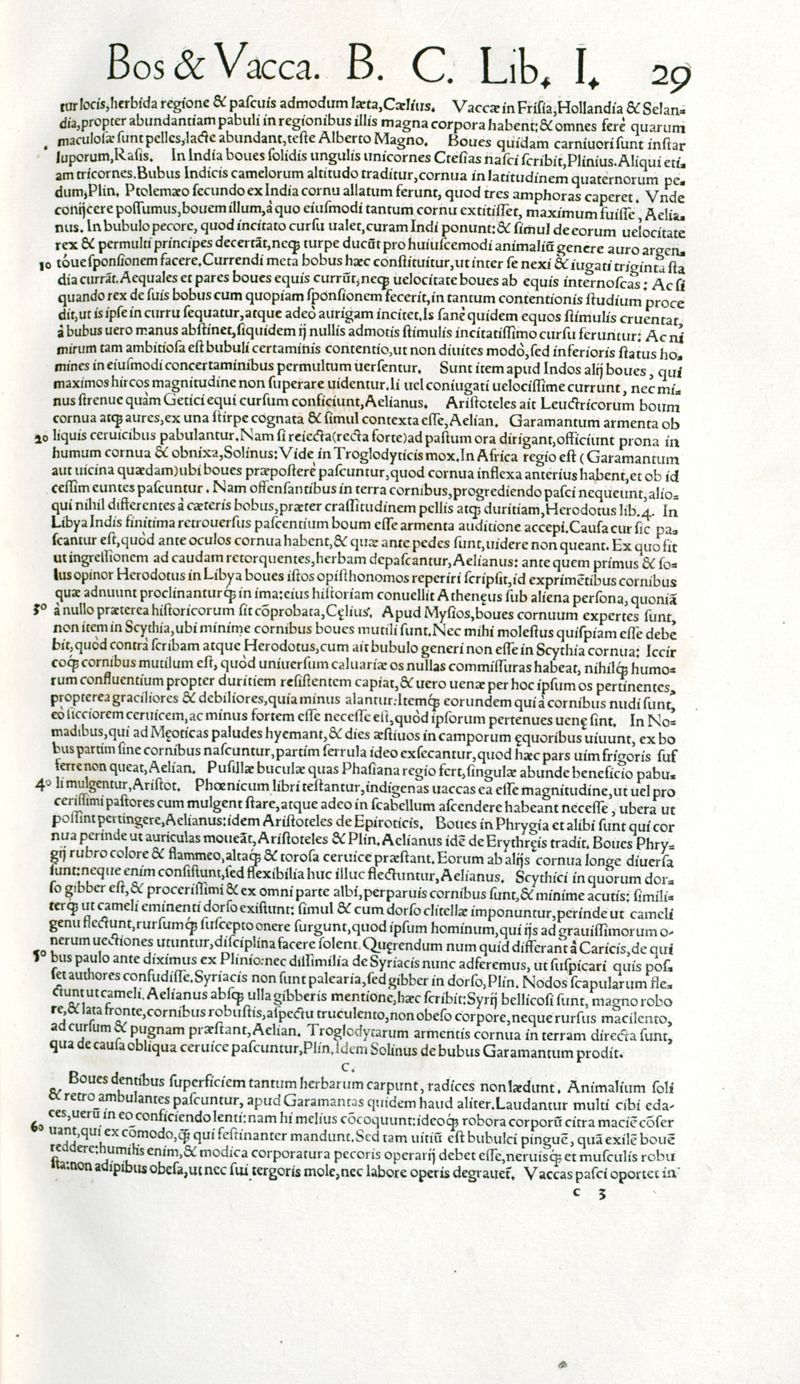 Bos & Vacca. B. C. Lib. I. 29
tur locis, herbida regione & pascuis admodum læta, Cælius. Vaccæ in Frisia, Hollandia & Selan=
dia, propter abundantiam pabuli in regionibus illis magna corpora habent: & omnes ferè quarum
maculosæ sunt pelles, lacte abundant, teste Alberto Magno. Boues quidam carniuori sunt instar
luporum, Rasis. In India boues solidis ungulis unicornes Ctesias nasci scribit, Plinius. Aliqui eti=
am tricornes. Bubus Indicis camelorum altitudo traditur, cornua in latitudinem quaternorum pe=
dum, Plin. Ptolemæo secundo ex India cornu allatum ferunt, quod tres amphoras caperet. Vnde
conijcere possumus, bouem illum, à quo eiusmodi tantum cornu extitisset, maximum fuisse, Aelia=
nus. In bubulo pecore, quod incitato cursu ualet, curam Indi ponunt: & simul de eorum uelocitate
rex & permulti principes decertāt, neqꝫ turpe ducūt pro huiuscemodi animaliū genere auro argen=
10 tóue sponsionem facere. Currendi meta bobus hæc constituitur, ut inter se nexi & iugati triginta sta
dia currāt. Aequales et pares boues equis currūt, neqꝫ uelocitate boues ab equis internoscas: Ac si
quando rex de suis bobus cum quopiam sponsionem fecerit, in tantum contentionis studium proce
dit, ut is ipse in curru sequatur, atque adeò aurigam incitet. Is sanè quidem equos stimulis cruentat,
à bubus uero manus abstinet, siquidem ij nullis admotis stimulis incitatissimo cursu feruntur: Ac ni
mirum tam ambitiosa est bubuli certaminis contentio, ut non diuites modò, sed inferioris status ho=
mines in eiusmodi concertaminibus permultum uersentur. Sunt item apud Indos alij boues, qui
maximos hircos magnitudine non superare uidentur. Ii uel coniugati uelocissime currunt, nec mi=
nus strenue quàm Getici equi cursum conficiunt, Aelianus. Aristoteles ait Leuctricorum boum
cornua atqꝫ aures, ex una stirpe cognata & simul contexta esse, Aelian. Garamantum armenta ob
20 liquis ceruicibus pabulantur. Nam si reiecta (recta forte) ad pastum ora dirigant, officiunt prona in
humum cornua & obnixa, Solinus: Vide in Troglodyticis mox. In Africa regio est (Garamantum
aut uicina quædam) ubi boues præposterè pascuntur, quod cornua inflexa anterius habent, et ob id
cessim euntes pascuntur. Nam offensantibus in terra cornibus, progrediendo pasci nequeunt, alio=
qui nihil differentes à cæteris bobus, præter crassitudinem pellis atqꝫ duritiam, Herodotus lib. 4. In
Libya Indis finitima retrouersus pascentium boum esse armenta auditione accepi. Causa cur sic pa=
scantur est, quòd ante oculos cornua habent, & quæ ante pedes sunt, uidere non queant. Ex quo fit
ut ingressionem ad caudam retorquentes, herbam depascantur, Aelianus: ante quem primus & so=
lus opinor Herodotus in Libya boues istos opisthonomos reperiri scripsit, id exprimētibus cornibus
quæ adnuunt proclinanturqꝫ in ima: eius historiam conuellit Athenęus sub aliena persona, quoniā
30 à nullo præterea historicorum sit cōprobata, Cęlius. Apud Mysios, boues cornuum expertes sunt,
non item in Scythia, ubi minime cornibus boues mutili sunt. Nec mihi molestus quispiam esse debe
bit, quòd contrà scribam atque Herodotus, cum ait bubulo generi non esse in Scythia cornua: Iccir
coqꝫ cornibus mutilum est, quòd uniuersum caluariæ os nullas commissuras habeat, nihilqꝫ humo=
rum confluentium propter duritiem resistentem capiat, & uero uenæ per hoc ipsum os pertinentes,
propterea graciliores & debiliores, quia minus alantur: Itemqꝫ eorundem qui à cornibus nudi sunt,
eò sicciorem ceruicem, ac minus fortem esse necesse est, quòd ipsorum pertenues uenę sint. In No=
madibus, qui ad Męoticas paludes hyemant, & dies æstiuos in camporum ęquoribus uiuunt, ex bo
bus partim sine cornibus nascuntur, partim serrula ideo exsecantur, quod hæc pars uim frigoris suf
ferre non queat, Aelian. Pusillæ buculæ quas Phasiana regio fert, singulæ abunde beneficio pabu=
40 li mulgentur, Aristot. Phœnicum libri testantur, indigenas uaccas ea esse magnitudine, ut uel pro
cerissimi pastores cum mulgent stare, atque adeo in scabellum ascendere habeant necesse, ubera ut
possint pertingere, Aelianus: idem Aristoteles de Epiroticis. Boues in Phrygia et alibi sunt qui cor
nua perinde ut auriculas moueāt, Aristoteles & Plin. Aelianus idē de Erythręis tradit. Boues Phry=
gij rubro colore & flammeo, altaqꝫ & torosa ceruice præstant. Eorum ab alijs cornua longe diuersa
sunt: neque enim consistunt, sed flexibilia huc illuc flectuntur, Aelianus. Scythici in quorum dor=
so gibber est, & procerissimi & ex omni parte albi, perparuis cornibus sunt, & minime acutis: simili=
terqꝫ ut cameli eminenti dorso existunt: simul & cum dorso clitellæ imponuntur, perinde ut cameli
genu flectunt, rursumqꝫ suscepto onere surgunt, quod ipsum hominum, qui ijs ad grauissimorum o=
nerum uectiones utuntur, disciplina facere solent. Quęrendum num quid differant à Caricis, de qui
50 bus paulo ante diximus ex Plinio: nec dissimilia de Syriacis nunc adferemus, ut suspicari quis pos=
set authores confudisse. Syriacis non sunt palearia, sed gibber in dorso, Plin. Nodos scapularum fle=
ctunt ut cameli. Aelianus absqꝫ ulla gibberis mentione, hæc scribit: Syrij bellicosi sunt, magno robo
re, & lata fronte, cornibus robustis, aspectu truculento, non obeso corpore, neque rursus macilento,
ad cursum & pugnam præstant, Aelian. Troglodytarum armentis cornua in terram directa sunt,
qua de causa obliqua ceruice pascuntur, Plin. Idem Solinus de bubus Garamantum prodit.
C.
Boues dentibus superficiem tantum herbarum carpunt, radices non lædunt. Animalium soli
& retro ambulantes pascuntur, apud Garamantas quidem haud aliter. Laudantur multi cibi eda=
ces, uerū in eo conficiendo lenti: nam hi melius cōcoquunt: ideoqꝫ robora corporū citra maciē cōser
60 uant, qui ex cōmodo, qꝫ qui festinanter mandunt. Sed tam uitiū est bubulci pinguē, quā exilē bouē
reddere: humilis enim, & modica corporatura pecoris operarij debet esse, neruisqꝫ et musculis robu
sta: non adipibus obesa, ut nec sui tergoris mole, nec labore operis degrauet. Vaccas pasci oportet in
c 3